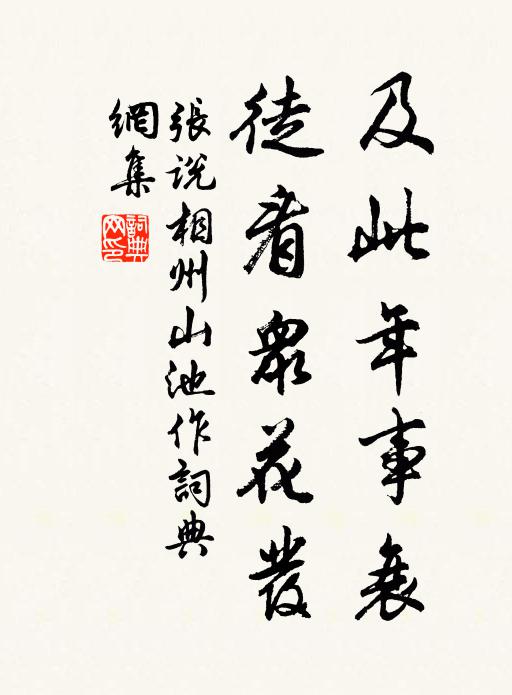 及此年事衰
徒看眾花發
張説相州山池作詞典
網集
詞典
网印